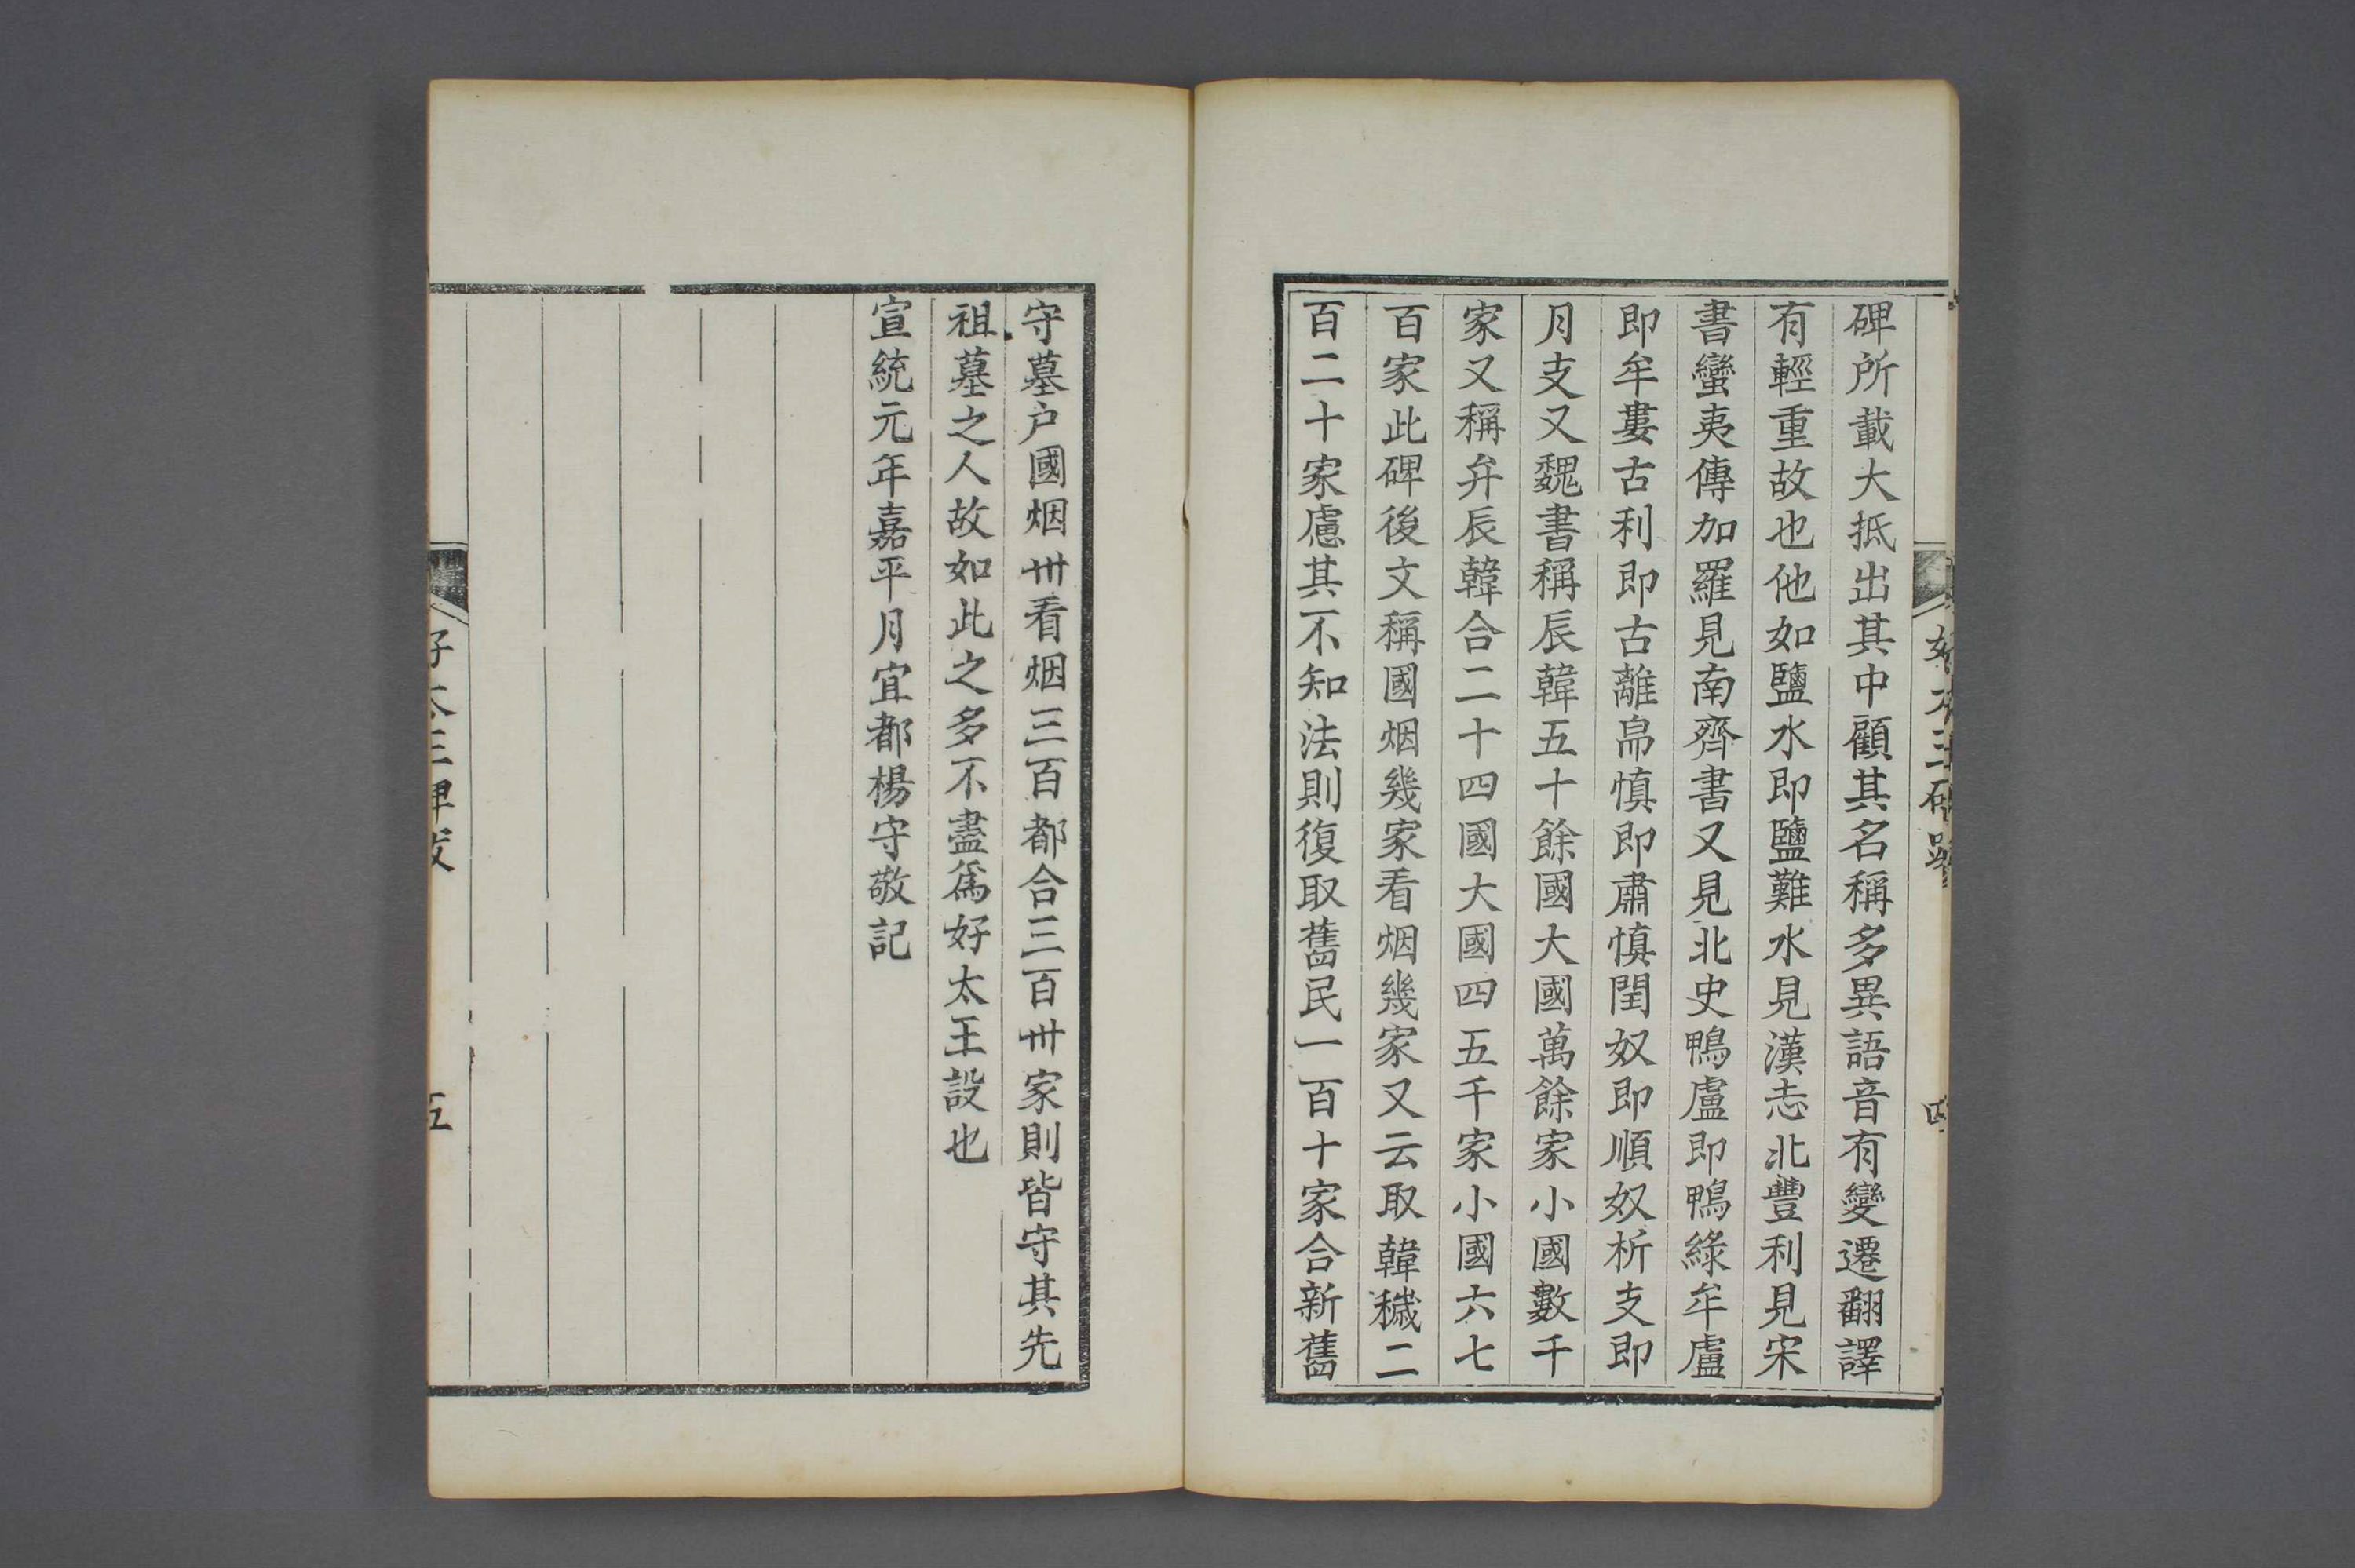 碑所載大抵出其中顧其名稱多異語音有變遷翻譯
有輕重故也他如鹽水即鹽難水見漢志北豐利見宋
書蠻夷傳加羅見南齊書又見北史鴨盧即鴨綠牟盧
即牟婁古利即古離帠慎即肅慎閏奴即順奴析支即
月支又魏書稱辰韓五十餘國大國萬餘家小國數千
家又稱弁辰韓合二十四國大國四五千家小國六七
百家此碑後文稱國烟幾家看烟幾家又云取韓穢二
百二十家慮其不知法則復取舊民一百十家合新舊
守墓户國烟卅看烟三百都合三百卅家則皆守其先
祖墓之人故如此之多不盡爲好太王設也
宣統元年嘉平月宜都楊守敬記
好太王碑跋
五